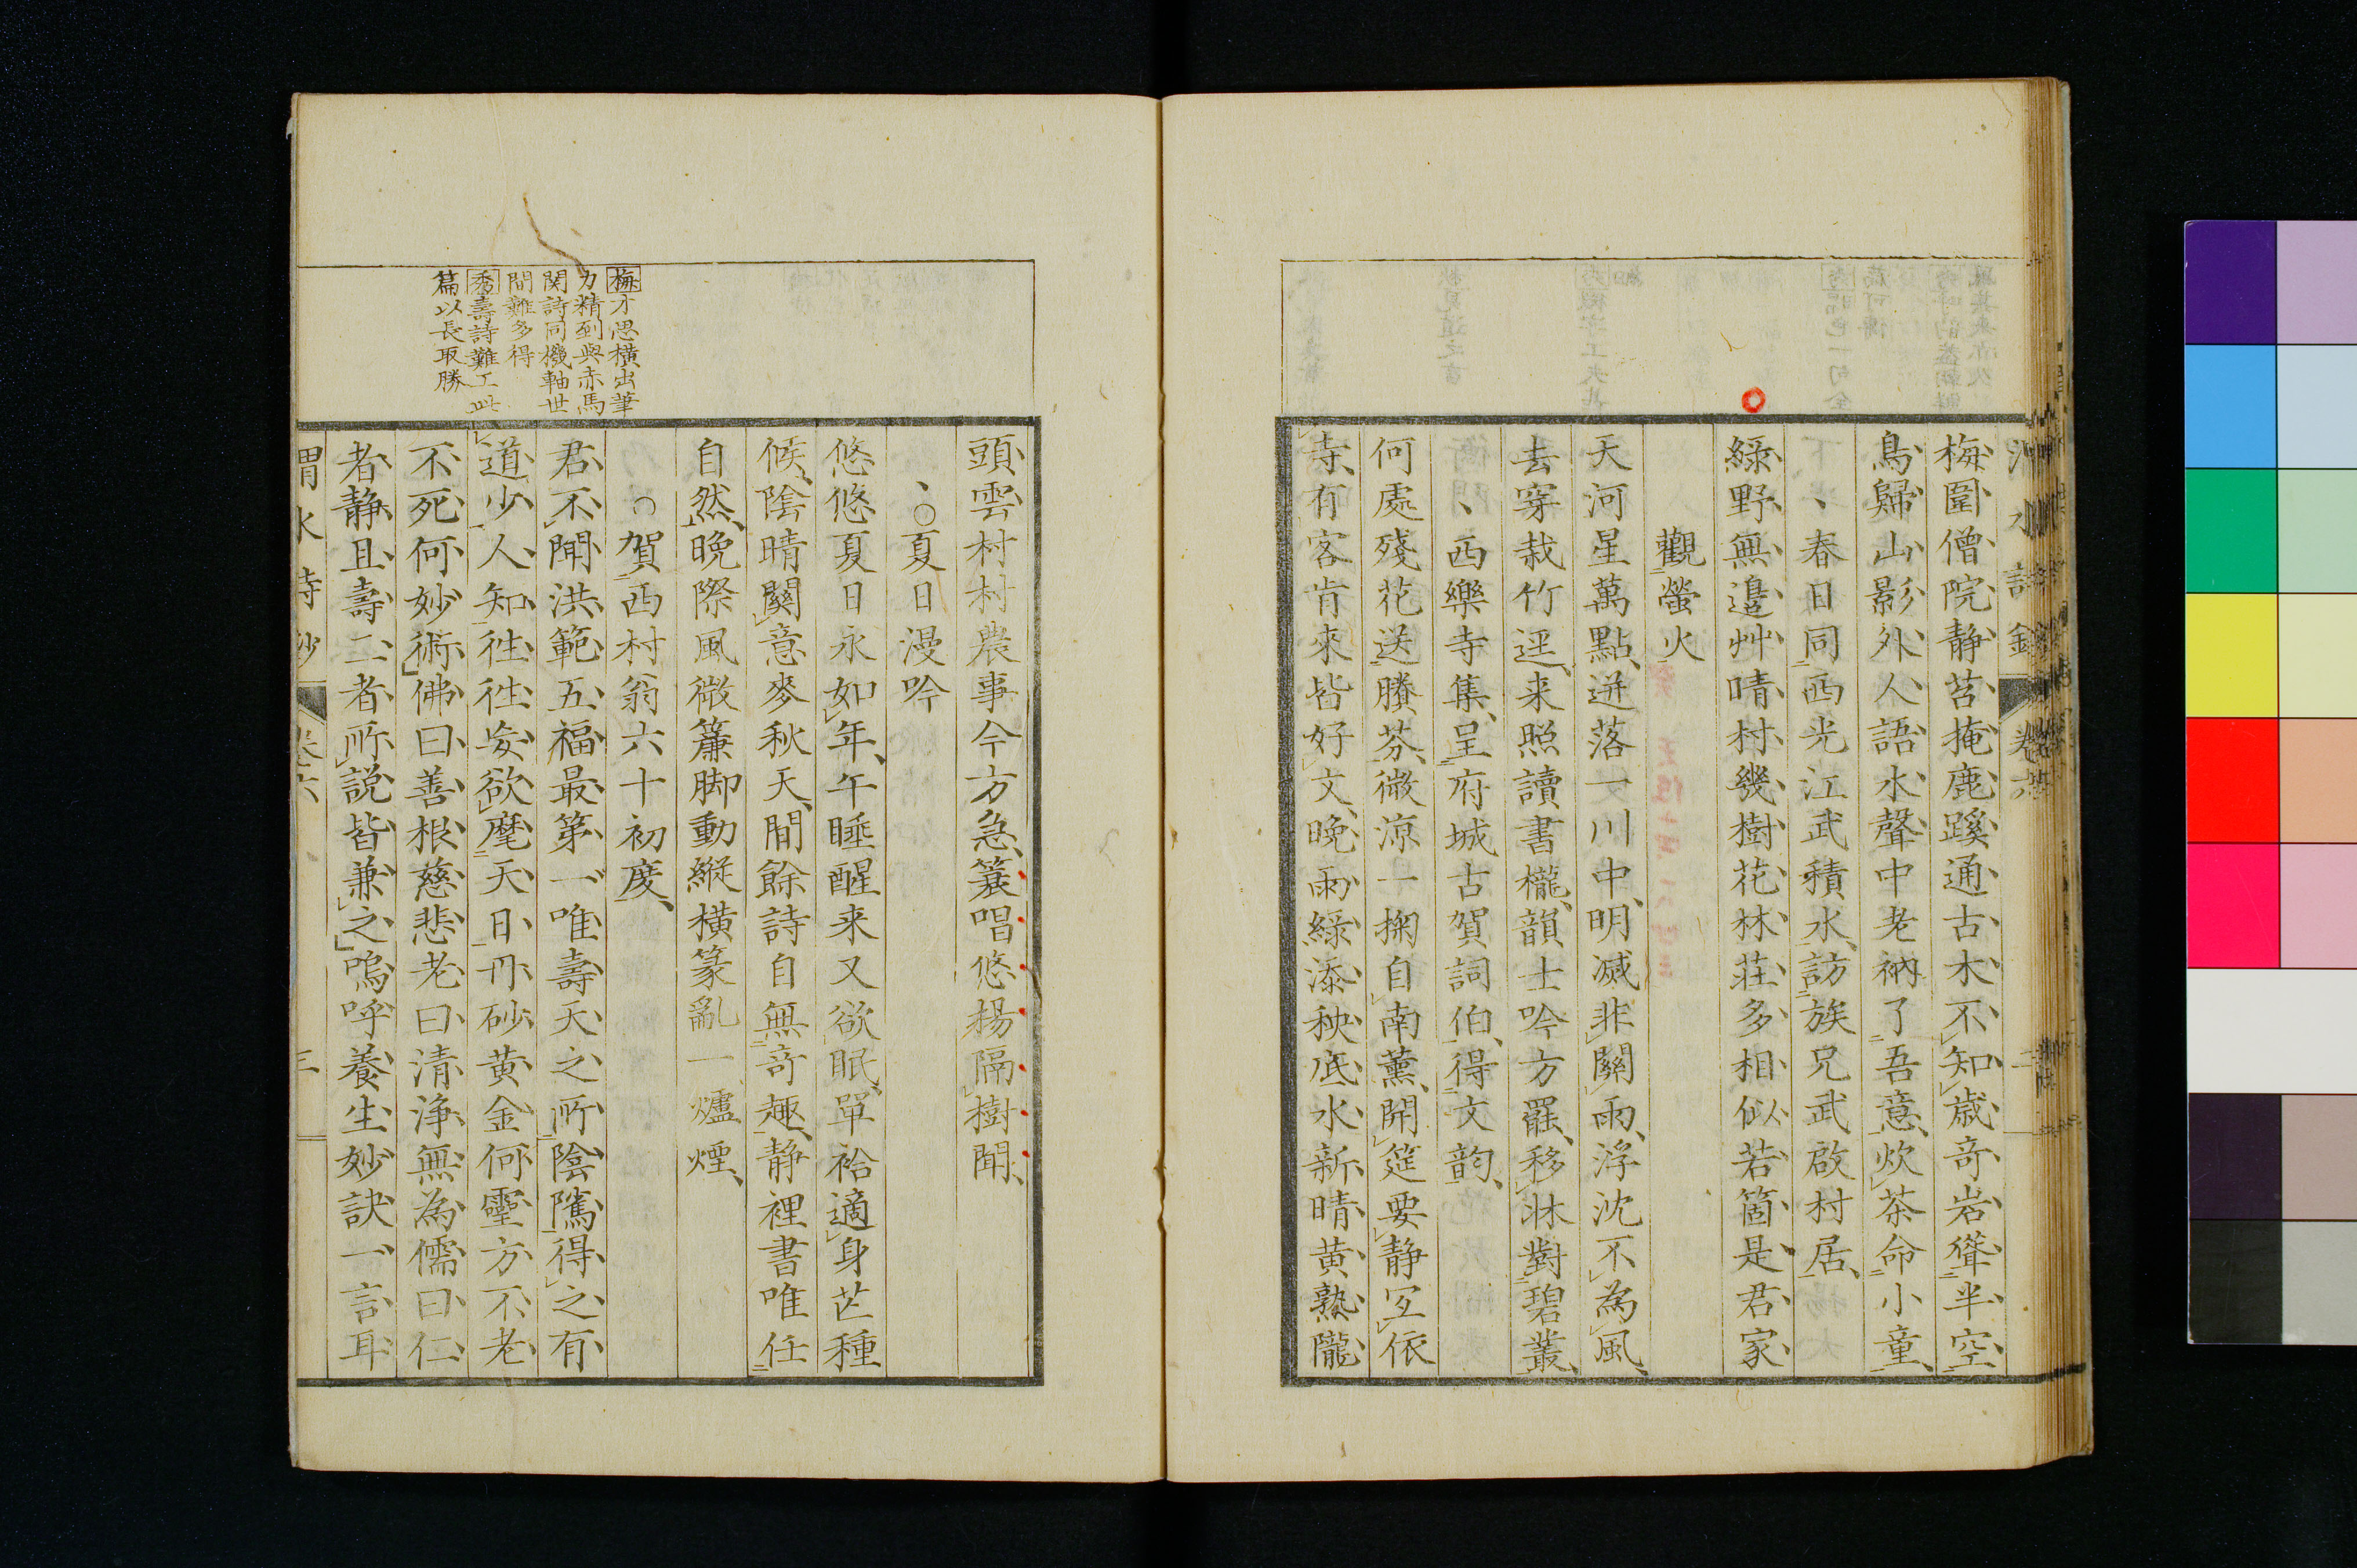 梅圍僧院靜苔掩鹿蹊通古木不知歳奇岩聳半空
鳥歸山影外人語水聲中老衲了吾意炊茶命小童
春日同西光江武積水訪族兄武啟村居
綠野無邊艸晴村幾樹花林莊多相似若箇是君家
觀螢火
天河星萬點迸落一川中明滅非關雨浮沈不為風
去穿栽竹逕来照讀書櫳韻士吟方罷移牀對碧叢
西樂寺集呈府城古賀詞伯得文韵
何處殘花送賸芬微涼一掬自南薰開筵要靜宜依
寺有客肯來皆好文晚雨綠添秧底水新晴黄熟隴
頭雲村村農事今方急簑唱悠揚隔樹聞
○夏日漫吟
悠悠夏日永如年午睡醒来又欲眠單袷適身芒種
候陰晴關意麥秋天閒餘詩自無奇趣靜裡書唯任
自然晚際風微簾脚動縱横篆亂一爐煙
○賀西村翁六十初度
君不聞洪範五福最第一唯壽天之所陰隲得之有
道少人知徃徃妄欲麾天日丹砂黄金何靈方不老
不死何妙術佛曰善根慈悲老曰清淨無為儒曰仁
者靜且壽二者所說皆兼之嗚呼養生妙訣一言耳
梅才思横出筆
力精到與赤馬
関詩同機軸世
間難多得
秀壽詩難工此
篇以長取勝
渭水詩鈔 卷六 三